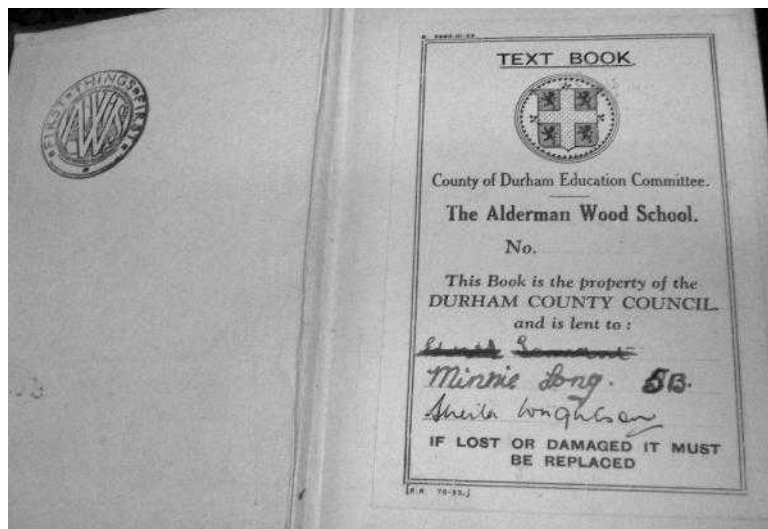 FIRST THINGS FIRST
AWS
TEXT BOOK
County of Durham Education Committee.
The Alderman Wood School.
No.
This Book is the property of the
DURHAM COUNTY COUNCIL
and is lent to :
Minnie Long. 5B.
Sheila
IF LOST OR DAMAGED IT MUST
BE REPLACED